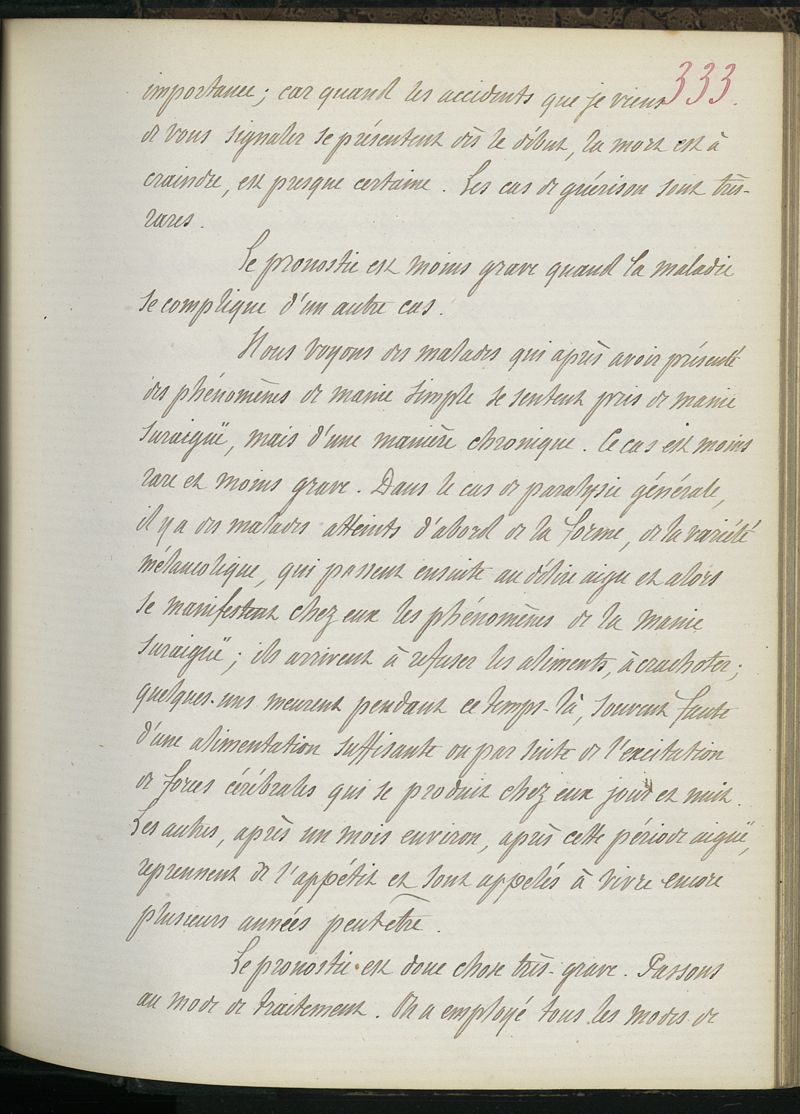 333.
importance; car quand les accidents que je viens
de vous signaler se présentent dès le début, la mort est à
craindre, est presque certaine. Les cas de guérison sont très-
rares.
Le pronostic est moins grave quand la maladie
se complique d'un autre cas.
Nous voyons des malades qui après avoir présenté
des phénomènes de manie simple se sentent pris de manie
suraigüe, mais d'une manière chronique. Ce cas est moins
rare et moins grave. Dans le cas de paralysie générale,
il y a des malades atteints d'abord de la forme, de la variété
mélancolique, qui passent ensuite au délire aigu et alors
se manifestent chez eux les phénomènes de la manie
suraigüe; ils arrivent à refuser les aliments, à crachoter;
quelques-uns meurent pendant ce temps-là, souvent faute
d'une alimentation suffisante ou par suite de l'excitation
de forces cérébrales qui se produit chez eux jour et nuit.
Les autres, après un mois environ, après cette période aigüe,
reprennent de l'appétit et sont appelés à vivre encore
plusieurs années peut-être.
Le pronostic est donc chose très-grave. Passons
au mode de traitement. On a employé tous les modes de